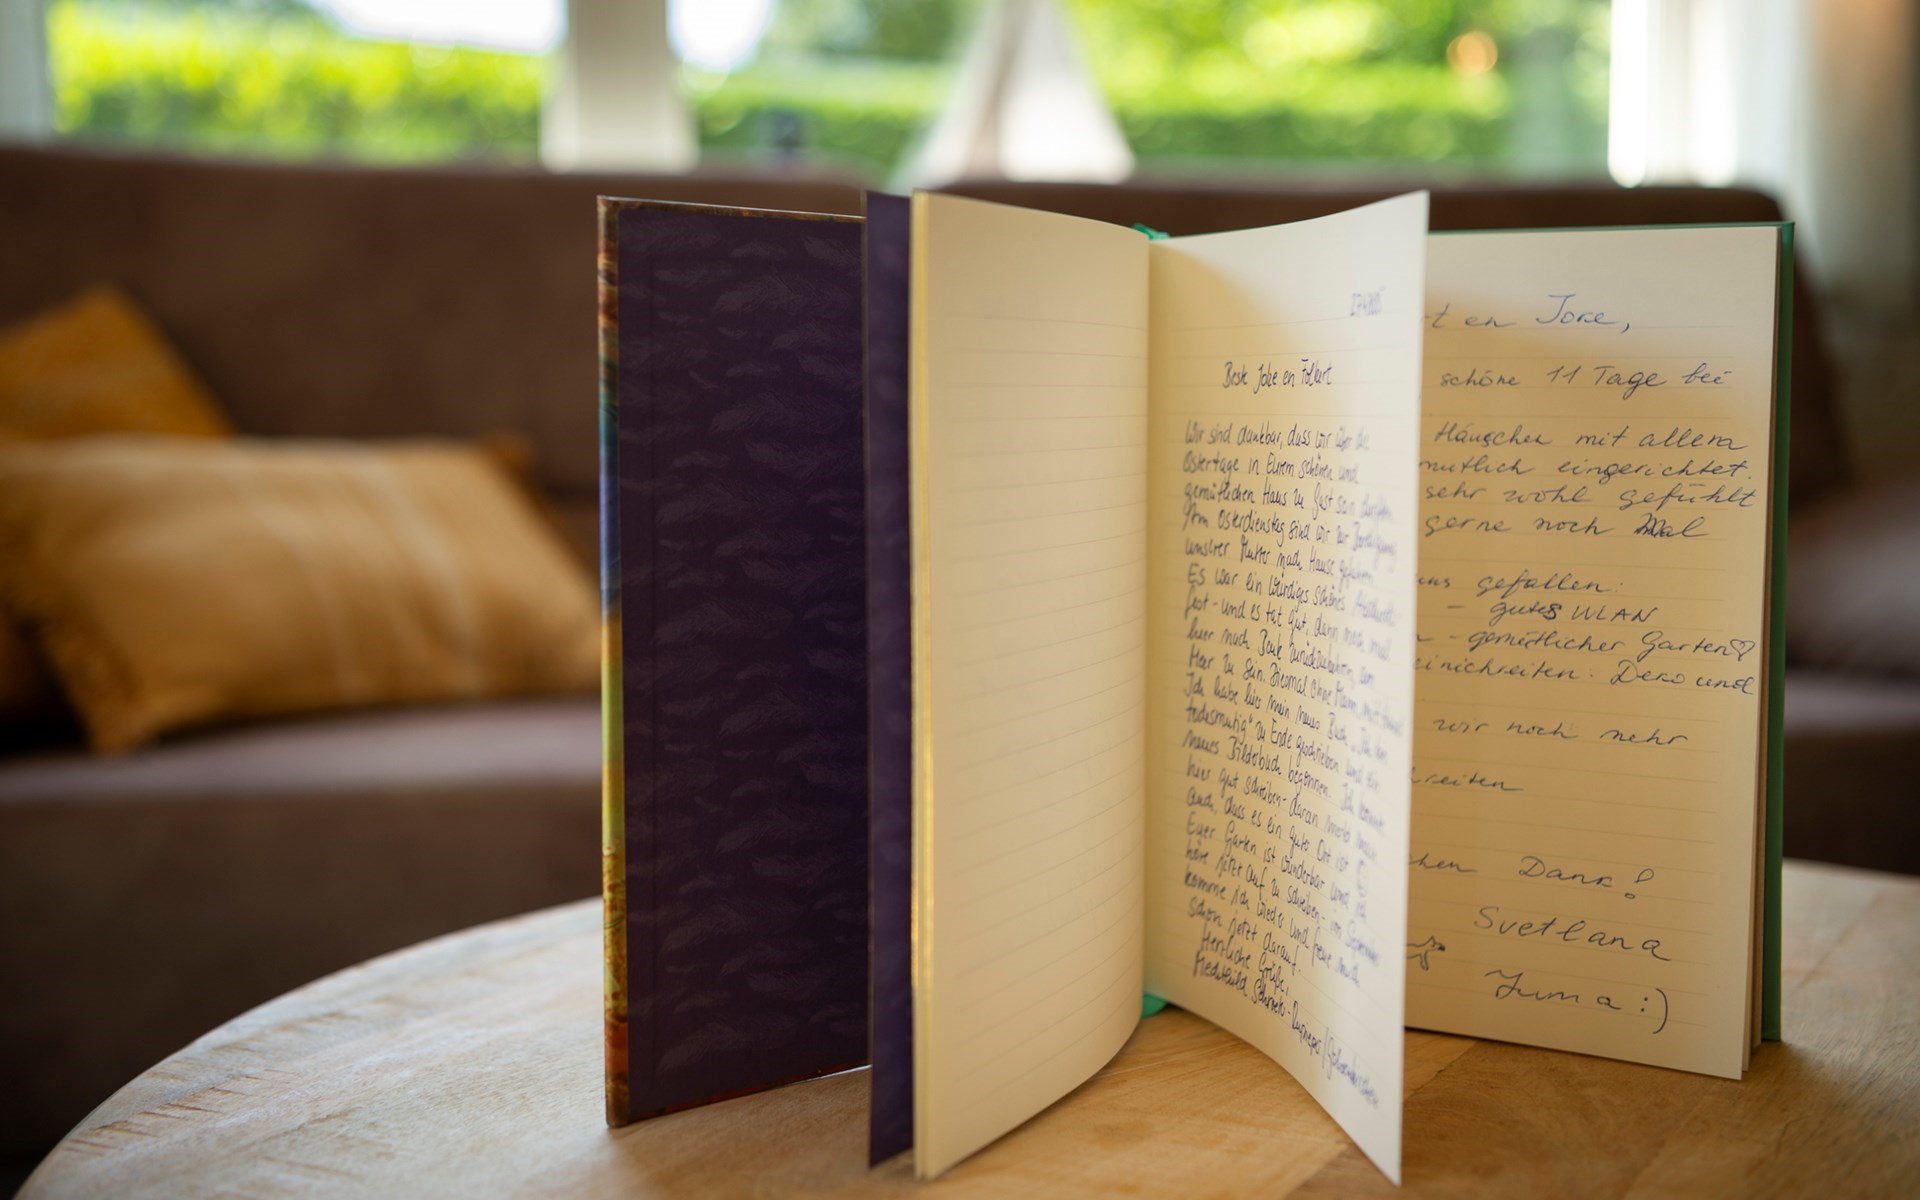 Beste Joke en Folkert
Wir sind dankbar, dass wir über die
Ostertage in Eurem schönen und
gemütlichen Haus zu Gast sein durften.
Am Osterdienstag sind wir zur
unserer Mutter nach Hause gefahren.
Es war ein würdiges schönes
fest - und es tat gut, dann noch mal
hier nach zurückzukehren, am
Meer zu sein. Diesmal ohne Mann, mit
Ich habe hier mein neues Buch
todesmutig" zu Ende geschrieben und ein
neues Bilderbuch begonnen. Ich konnte
hier gut schreiben - daran merkt man
auch, dass es ein guter Ort ist
Euer Garten ist wunderbar und ich
höre jetzt auf zu schreiben - im
komme ich wieder und freue mich
schon jetzt darauf.
Herzliche Grüße,
Mechthild
t en Joke,
schöne 11 Tage bei
Häuschen mit allem
mütlich eingerichtet.
sehr wohl gefühlt
gerne noch Mal
uns gefallen:
- gutes WLAN
- gemütlicher Garten♡
einichreiten: Deko und
wir noch mehr
reiten
chen Dank!
Svetlana
Juma :)